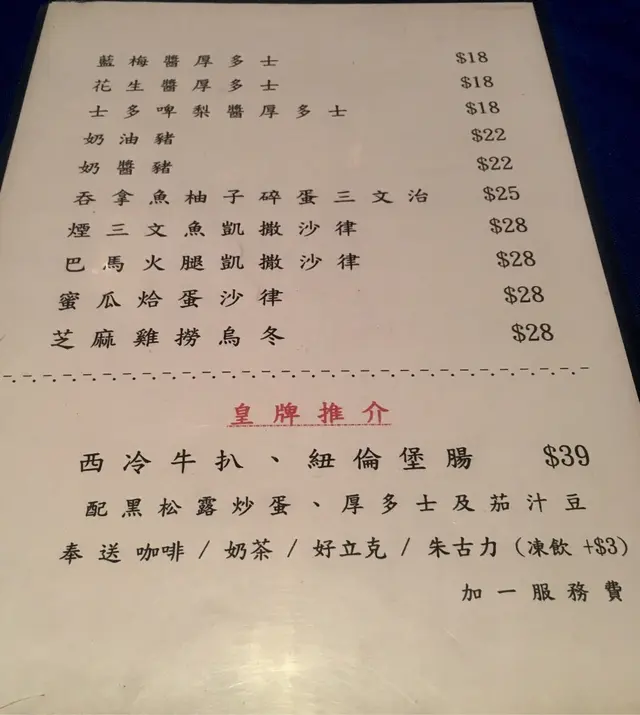 藍梅醬厚多士 $18
花生醬厚多士 $18
士多啤梨醬厚多士 $18
奶油豬 $22
奶醬豬 $22
吞拿魚柚子碎蛋三文治 $25
煙三文魚凱撒沙律 $28
巴馬火腿凱撒沙律 $28
蜜瓜烚蛋沙律 $28
芝麻雞撈烏冬 $28
皇牌推介
西冷牛扒、紐倫堡腸 $39
配黑松露炒蛋、厚多士及茄汁豆
奉送咖啡 / 奶茶 / 好立克 / 朱古力 (凍飲 +$3)
加一服務費